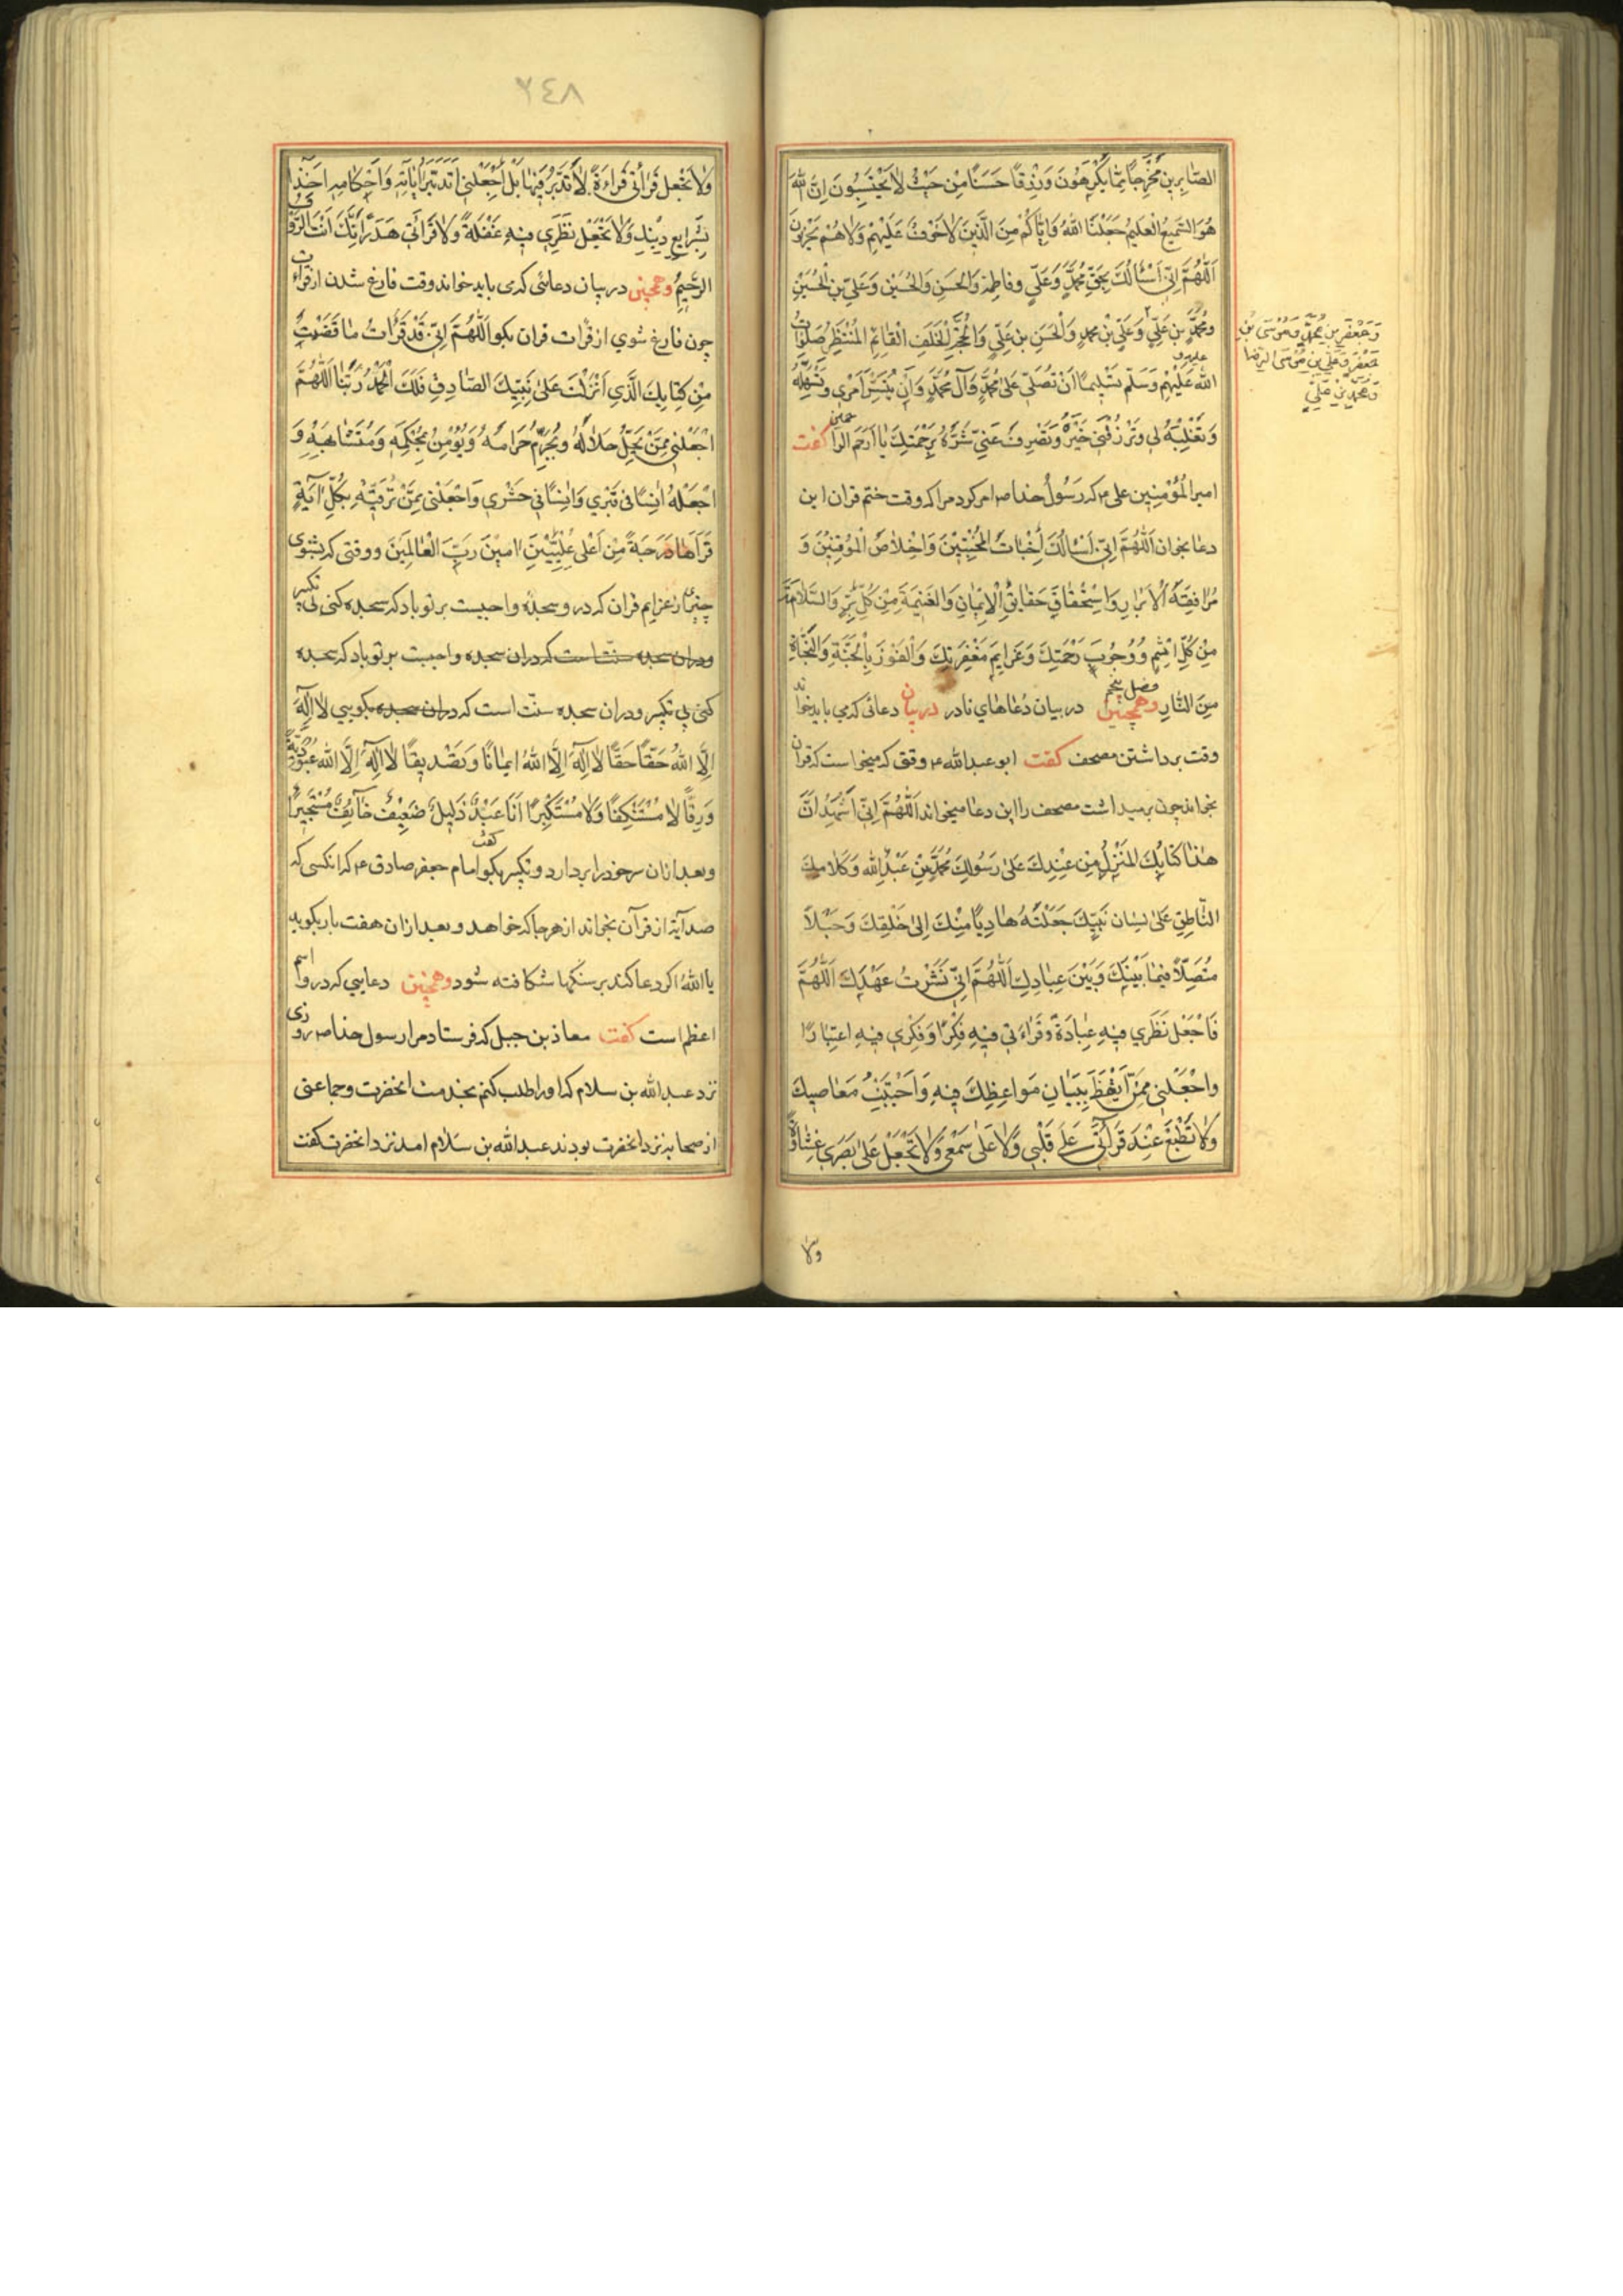 الصّابِرِینَ مَخْرَجًا مِمّا یَکْرَهُونَ وَرِزْقًا حَسَنًا مِنْ حَیْثُ لا یَحْتَسِبُونَ اِنَّ اللهَ
هُوَ السَّمیعُ الْعَلیمُ جَعَلْنَا اللهُ وَاِیّاکُمْ مِنَ الَّذینَ لاخَوْفٌ عَلَیْهِمْ وَلاهُمْ یَحْزَنُونَ
اَللّهُمَّ اِنّی اَسْأَلُکَ بِحَقِّ مُحَمَّدٍ وَعَلِیٍّ وفاطِمَةَ وَالحَسَنِ وَالحُسَیْنِ وَعَلیِّ بْنِ الْحُسَیْنِ
ومُحَمَّدِ بْنِ عَلِیٍّ وَعَلیِّ بْنِ مُحَمَّدٍ وَالْحَسَنِ بْنِ عَلِیٍّ وَالْحُجَّةِ الْخَلَفِ الْقائِمِ الْمُنْتَظَرِ صَلَواتُ
وَجَعْفَرِ بْنِ مُحَمَّدٍ وَمُوْسَی بْنِ
جَعْفَرٍ وَعَلیِّ بْنِ مُوْسَی الرِّضَا
وَمُحَمَّدِ بْنِ عَلِیٍّ
اللهِ عَلَیْهِمْ وَسَلِّمْ تَسْلِیمًا اَنْ تُصَلِّیَ عَلی مُحَمَّدٍ وَآلِ مُحَمَّدٍ وَاَنْ تُیَسِّرَ اَمْرِی وتُسَهِّلَهُ
وَتَغْلِبَهُ لی وَتَرْزُقَنی خَیْرَهُ وَتَصْرِفَ عَنّی شَرَّهُ بِرَحْمَتِکَ یا اَرْحَمَ الراحمین کفت
امیرالْمُؤْمِنِینَ علی ۴ که رَسُولُ خدا ص امر کرد مرا که وقت ختم قران این
دعا بخوان اَللّهُمَّ اِنّی اَسْأَلُکَ اِخْباتَ الْمُخْبِتِیْنَ وَاِخْلاصَ الْمُوْقِنِیْنَ وَ
مُرافَقَةَ الْاَبْرارِ وَاسْتِحْقاقَ حَقائِقِ الْاِیْمانِ وَالغَنِیْمَةَ مِنْ کُلِّ بِرٍّ وَالسَّلامَةَ
مِنْ کُلِّ اِثْمٍ وَوُجُوبَ رَحْمَتِکَ وَعَزایِمَ مَغْفِرَتِکَ وَالْفَوْزَ بِالْجَنَّةِ وَالنَّجاةَ
مِنَ النّارِ فصل پنجم وهمچنین در بیان دُعاهای نادر در بیان دعائی که می باید خواند
وقت برداشتن مصحف کفت ابو عبدالله ۴ وقتی که میخواست که قران
بخواند چون برمیداشت مصحف را این دعا میخواند اَللّهُمَّ اِنّی اَشْهَدُ اَنَّ
هذا کِتابُکَ المُنْزَلُ مِنْ عِنْدِکَ عَلی رَسُولِکَ مُحَمَّدِ بْنِ عَبْدِاللهِ وَکَلامُکَ
النّاطِقِ عَلی لِسانِ نَبِیِّکَ جَعَلْتَهُ هادِیًا مِنْکَ اِلی خَلْقِکَ وَحَبْلاً
مُتَّصِلاً فیما بَیْنَکَ وَبَیْنَ عِبادِکَ اَللّهُمَّ اِنّی نَشَرْتُ عَهْدَکَ اَللّهُمَّ
فَاجْعَلْ نَظَری فیهِ عِبادَةً وَقَراءَتی فیهِ فِکْرًا وَفِکْری فیهِ اعتِبارًا
واجْعَلْنی مِمَّنِ اتَّعَظَ بِبَیانِ مَواعِظِکَ فیهِ وَاجْتَنَبَ مَعاصیکَ
وَلا تَطْبَعْ عِنْدَ قَرائَتی عَلی قَلْبی وَلا عَلی سَمْعی وَلا تَجْعَلْ عَلی بَصَری غِشاوَةً
ولا
۲٤٨
وَلا تَجْعَلْ قَرائَتی قَراءَةً لا تَدَبُّرَ فیها بَلِ اجْعَلْنی اَتَدَبَّرُ آیاتِهِ وَاَحْکامِهِ اخِذًا
بِشَرایِعِ دینِکَ وَلا تَجْعَلْ نَظَری فیهِ غَفْلَةً وَلا قَرائَتی هَذَرًا اِنَّکَ اَنْتَ الرَّؤفُ
الرَّحیمُ وهمچنین در بیان دعائی که می باید خواند وقت فارغ شدن از قراءت
چون فارغ شوی از قرات قران بکو اَللّهُمَّ اِنّی قَدْ قَرَأتُ ما قَضَیْتَ
مِنْ کِتابِکَ الَّذی اَنْزَلْتَ عَلی نَبِیِّکَ الصّادِقِ فَلَکَ الْحَمْدُ رَبَّنا اَللّهُمَّ
اجْعَلْنی مِمَّنْ یُحِلُّ حَلالَهُ ویُحَرِّمُ حَرامَهُ وَیُوْمِنُ بِمُحْکَمِهِ وَمُتَشابِهِهِ وَ
اجْعَلْهُ اُنْسًا فی قَبْری وَاُنْسًا فی حَشْری وَاجْعَلْنی مِمَّنْ تُرَقِّیْهِ بِکُلِّ آیَةٍ
قَرَأَها دَرَجَةً مِنْ اَعْلی عِلِّیِّیْنَ امِیْنَ رَبَّ الْعالَمِیْنَ ووقتی که بشنوی
چیزی را از عزایم قران که درو سجده واجبست بر تو باد که سجده کنی بی تکبیر
ودران سجده سنّت است که دران سجده واجبست بر تو باد که سجده
کنی بی تکبیر ودران سجده سنّت است که دران سجده بکویی لا اِلهَ
اِلَّا اللهُ حَقًّا حَقًّا لا اِلهَ اِلَّا اللهُ ایمانًا وَتَصْدیقًا لا اِلهَ اِلَّا اللهُ عُبُوْدِیَّةً
وَرِقًّا لا مُسْتَنْکِفًا وَلا مُسْتَکْبِرًا اَنَا عَبْدٌ ذَلیلٌ ضَعیفٌ خآئِفٌ مُسْتَجیرًا
وبعد ازان سر خود را بردارد وتکبیر بکو کفت امام جعفر صادق ۴ که انکسی که
صد آیة از قرآن بخواند از هرجا که خواهد وبعد ازان هفت بار بکوید
یا اللهُ اکر دعا کند بر سنکها شکافته شود وهمچنین دعایی که درو اسم
اعظم است کفت معاذ بن جبل که فرستاد مرا رسول خدا ص روزی
نزد عبدالله بن سلام که او را طلب کنم بخدمت انحضرت وجماعتی
از صحابه نزد انحضرت بودند عبدالله بن سَلام امد نزد انحضرت کفت